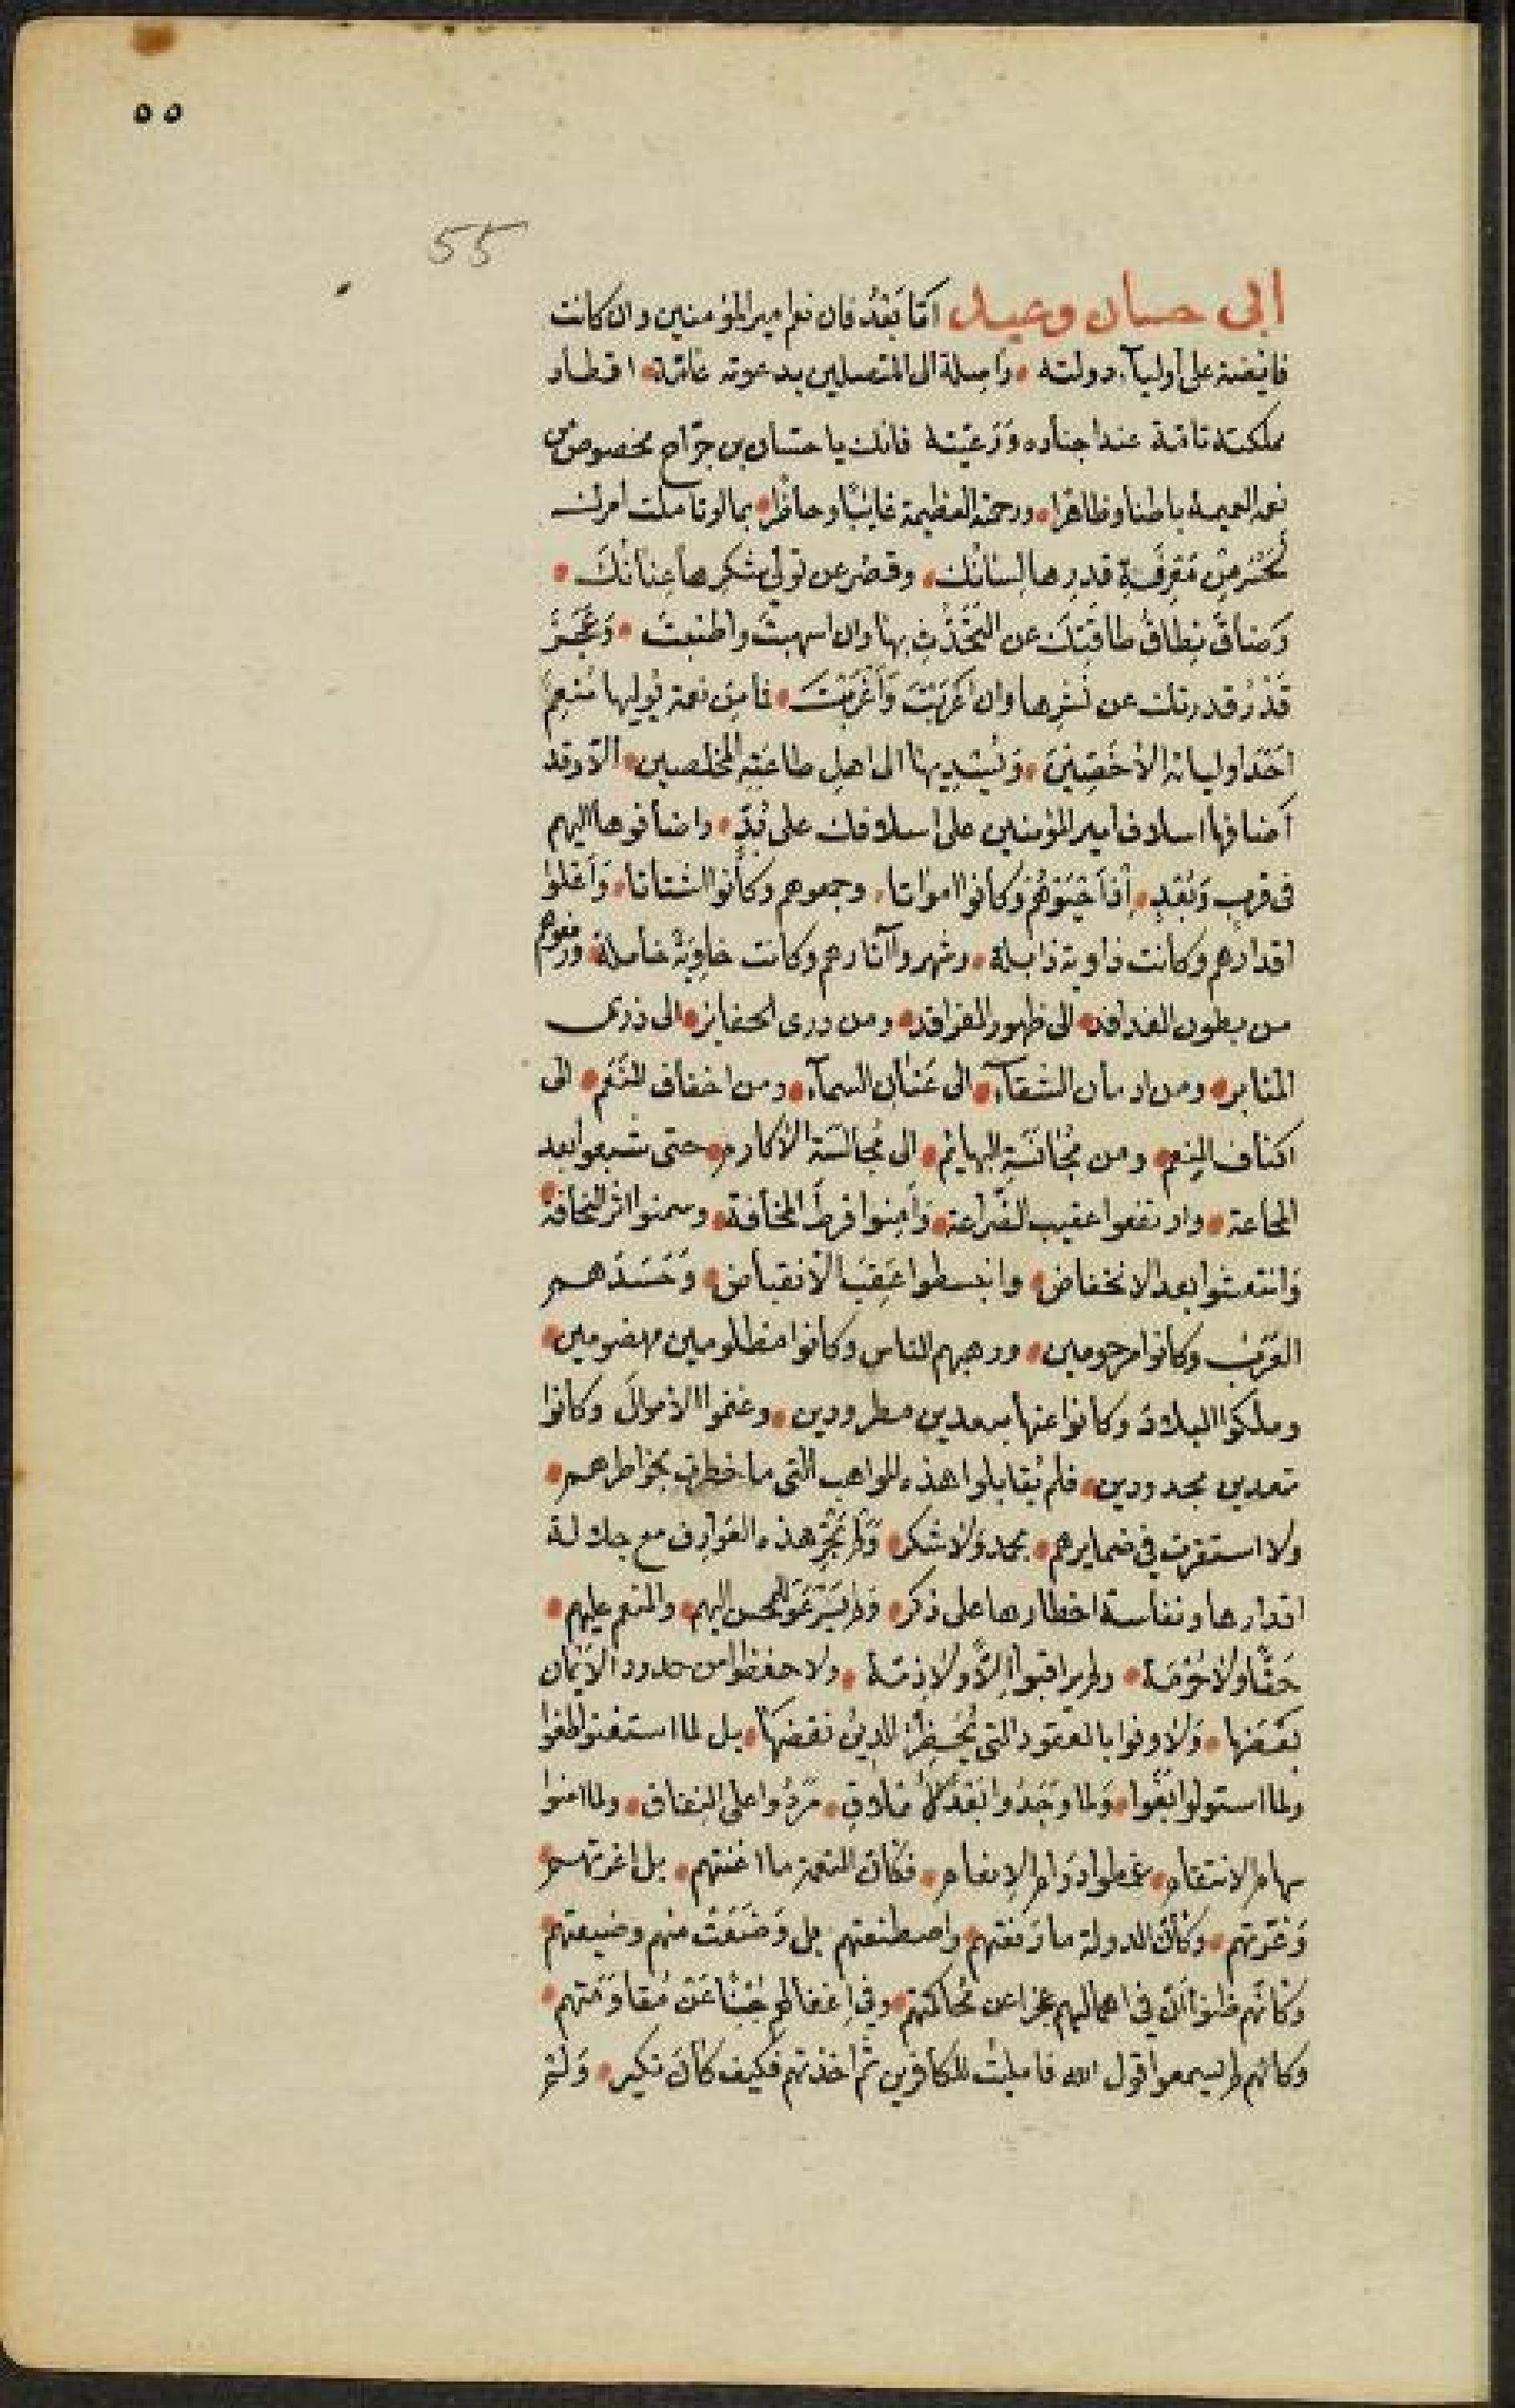 ٥٥
55
ابى حسان وعبيد اَمّا بَعْدُ فان نعم امير المؤمنين وان كانت
فايضة على أوليآء دولته • واصلة الى المتصلين بدعوته عامّة • اقطار
مملكته تامّة عند اجناده وَرَعيّته فانك يا حسّان بن جرّاح مخصوص من
نعمه العميمة باطنا وظاهرا • ورحمته العظيمة غايبًا وحاضرا • بما لو تاملت امرك
لَخَرِسَ مَعْرِفَةِ قدرها لسانك • وقصر عن تولي شكرها عِنانُكَ •
وَضاقَ نِطَاقُ طاقَتِكَ عن التَحَدُثِ بها وان اسهبتَ واطنبتَ • وَعَجَزَ
قَدْرُ قدرتك عن نَشْرِها وان اَعْرَبْتَ وَاَغْرَبْتَ • فما مِن نعمة يُوليها مُنعِم
اَحَدَ اوليائه الاَخَصِينَ • وَيُسْدِيها الى اهل طاعَتِهِ المخلصين • الاّ وقد
اَضافها اسلاف امير المؤمنين على اسلافك على بُدٍّ • واضافوها اليهم
فى قربٍ وَبُعْدٍ • اِذ اَحْيَوْهُمْ وَكانوا امواتا • وجمعوهم وكانوا اشتاتا • وَاَعْلوا
اقدارهم وكانت ذاوية ذابلة • وشهروا آثارهم وكانت خاوِيَةً خاملة • ورفعوهم
من بطون الفدافد • الى ظهور الفراقد • ومن ذرى الحفاير • الى ذرى
المنابر • ومن ادمان الشقآء • الى عَنَان السمآء • ومن اخفاف النَعَم • الى
اكناف النِعم • ومن مُجَانَسَةِ البهايم • الى مُجالسَة الأكارم • حتى شبعوا بعد
المجاعة • وارتفعوا عقيب الضراعة • وَاَمِنوا فرطَ المخافة • وسمنوا اثر النحافة •
وَانتعشوا بعد الانخفاض • وانبسطوا عَقِبَ الأنقباض • وَحَسَدَهم
العَرَبُ وكانوا مرحومين • ورهبهم الناس وكانوا مظلومين مهضومين •
وملكوا البلادَ وكانوا عنها مبعدين مطرودين • وغنموا الاَموالَ وكانوا
محدودين • فلم يُقابلوا هذه المواهب التى ما خطرت بخواطرهم •
ولا استقرت في ضمايرهم • بحمدٍ وَلا شكر • وَلم تَجْرِ هذه العَوارِف مع جلالة
اقدارها ونفاسة اخطارها على ذكر • وَلم يَرْعَوْا للمحسن اليهم • والمنعم عليهم •
حَقًّا وَلا حُرْمَة • ولم يراقبوا اِلاًّ وَلا ذِمّة • ولا حفظوا من حدود الاَيْمان
بَعْضَها • وَلا وفوا بالعقود التى يَحْظِرُ الدينُ نقضها • بل لما استغنوا طغوا
ولما استولوا بَغَوا • وَلما وَجَدُوا بَعْدَ مَرَدُوا على النفاق • ولما امنوا
سهام الانتقام • غمطوا دَوام الاِنعام • فكأنّ النعمة ما اغنتهم • بل اغرتهم
وَغَرّتهم • وكأنّ الدولة ما رَفَعتهم واصطنعتهم • بل وَضَعَتْ منهم وضيعتهم •
وَكأنّهم ظنوا اَنّ في اهمالهم عجزا عن محاكمتهم • وفي اِغفالهم جُبْنًا عَنْ مُقاوَمَتهم •
وَكأنّهم لم يسمعوا قول الله فامليتُ للكافرين ثُم اخذتهم فكيف كانَ نكير • وَلَمْ